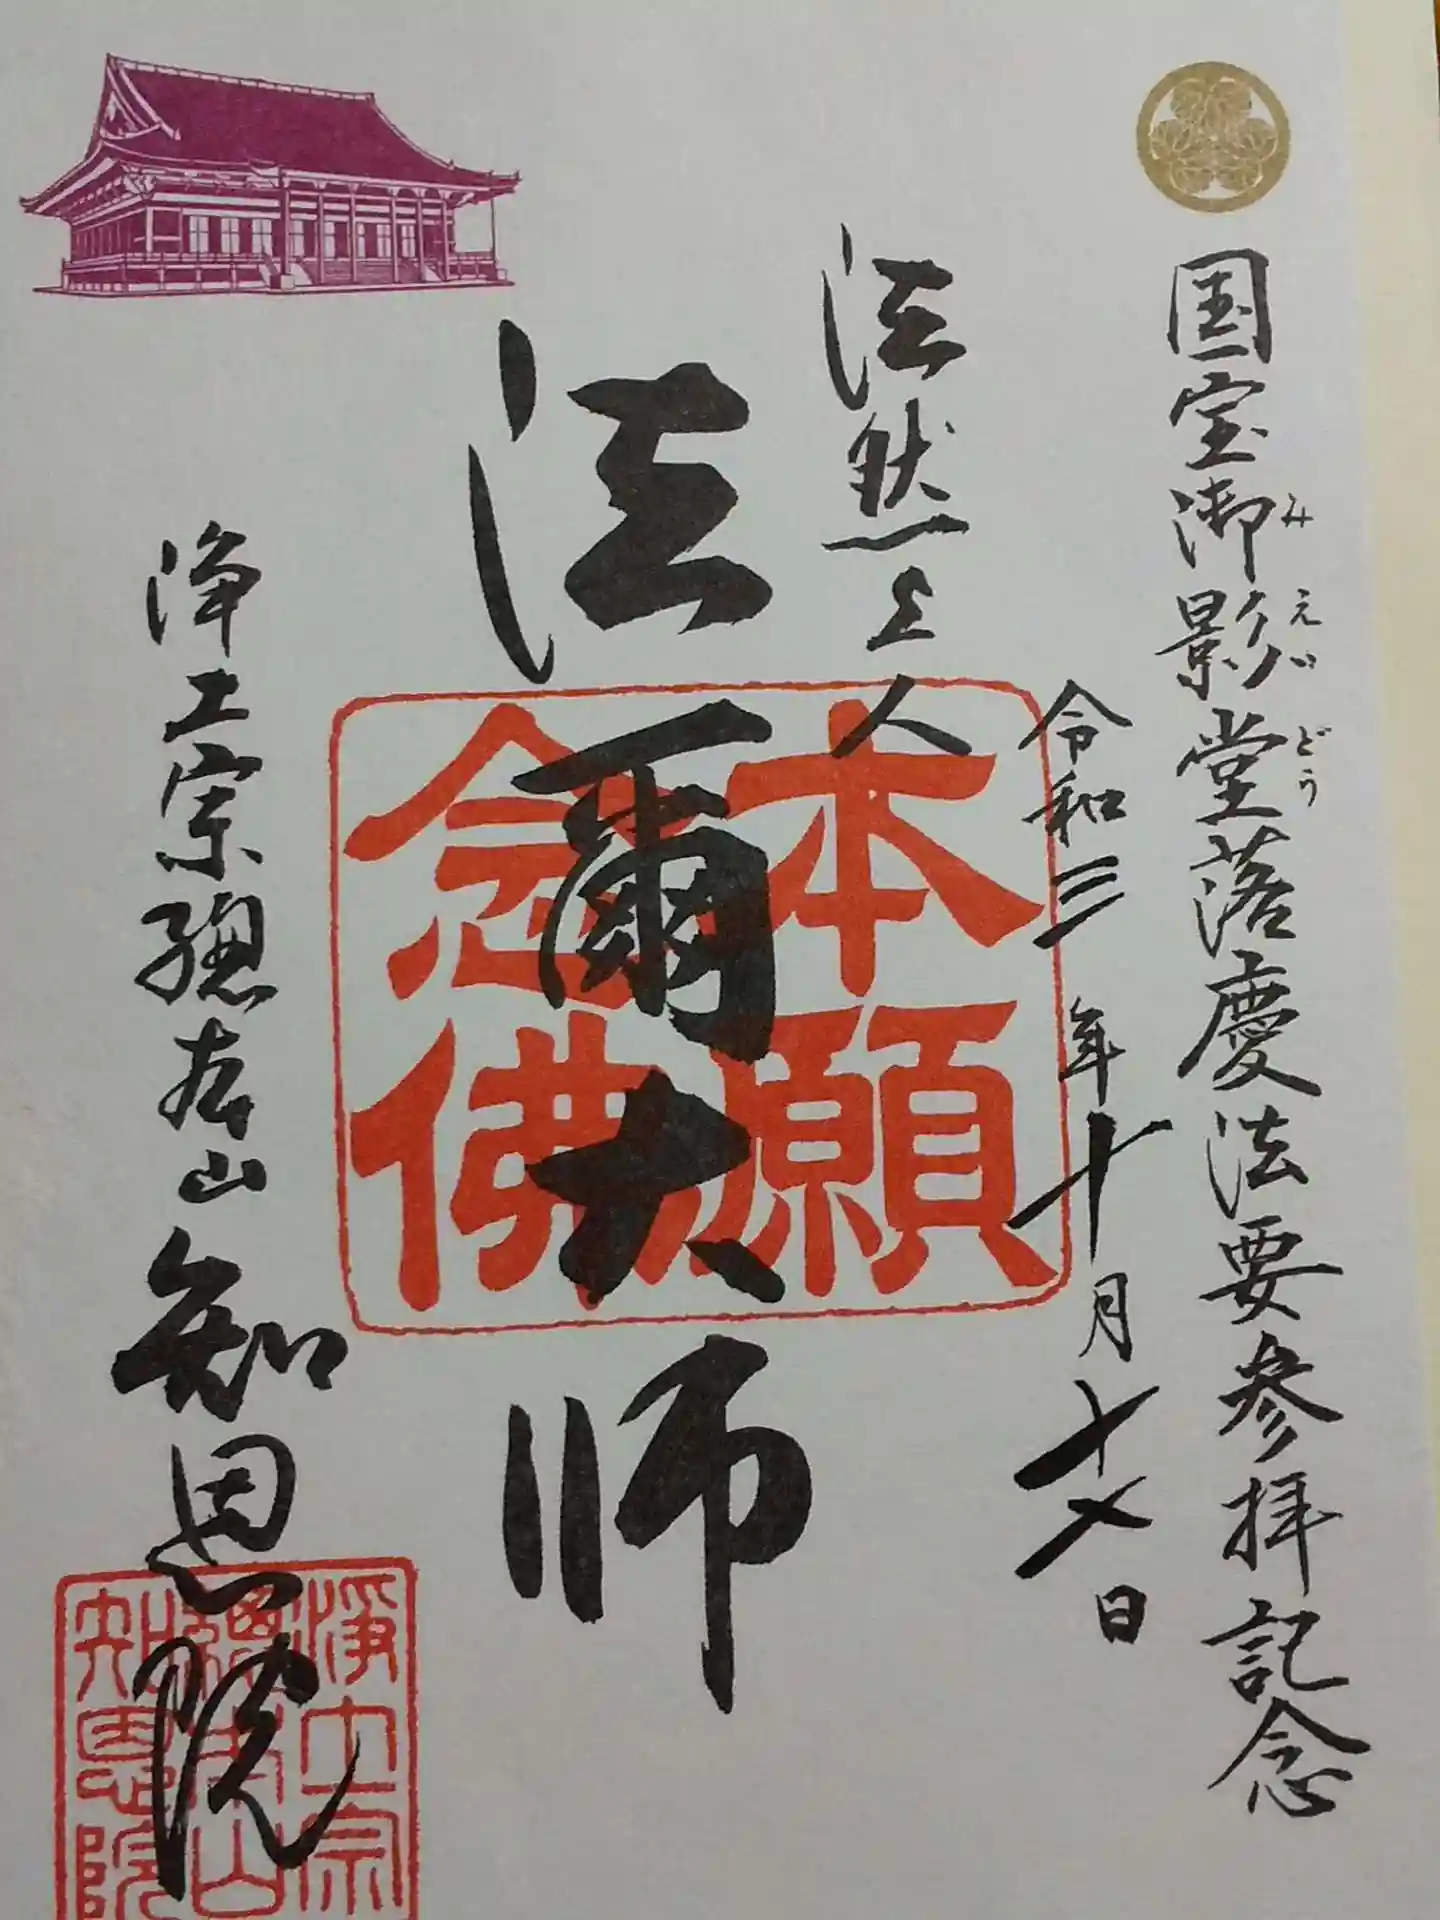 国宝御影堂落慶法要参拝記念
みえいどう
令和三年十月十七日
法然上人
法爾大师
浄土宗總本山知恩院
本願
念佛
淨土宗
總本山
知恩院